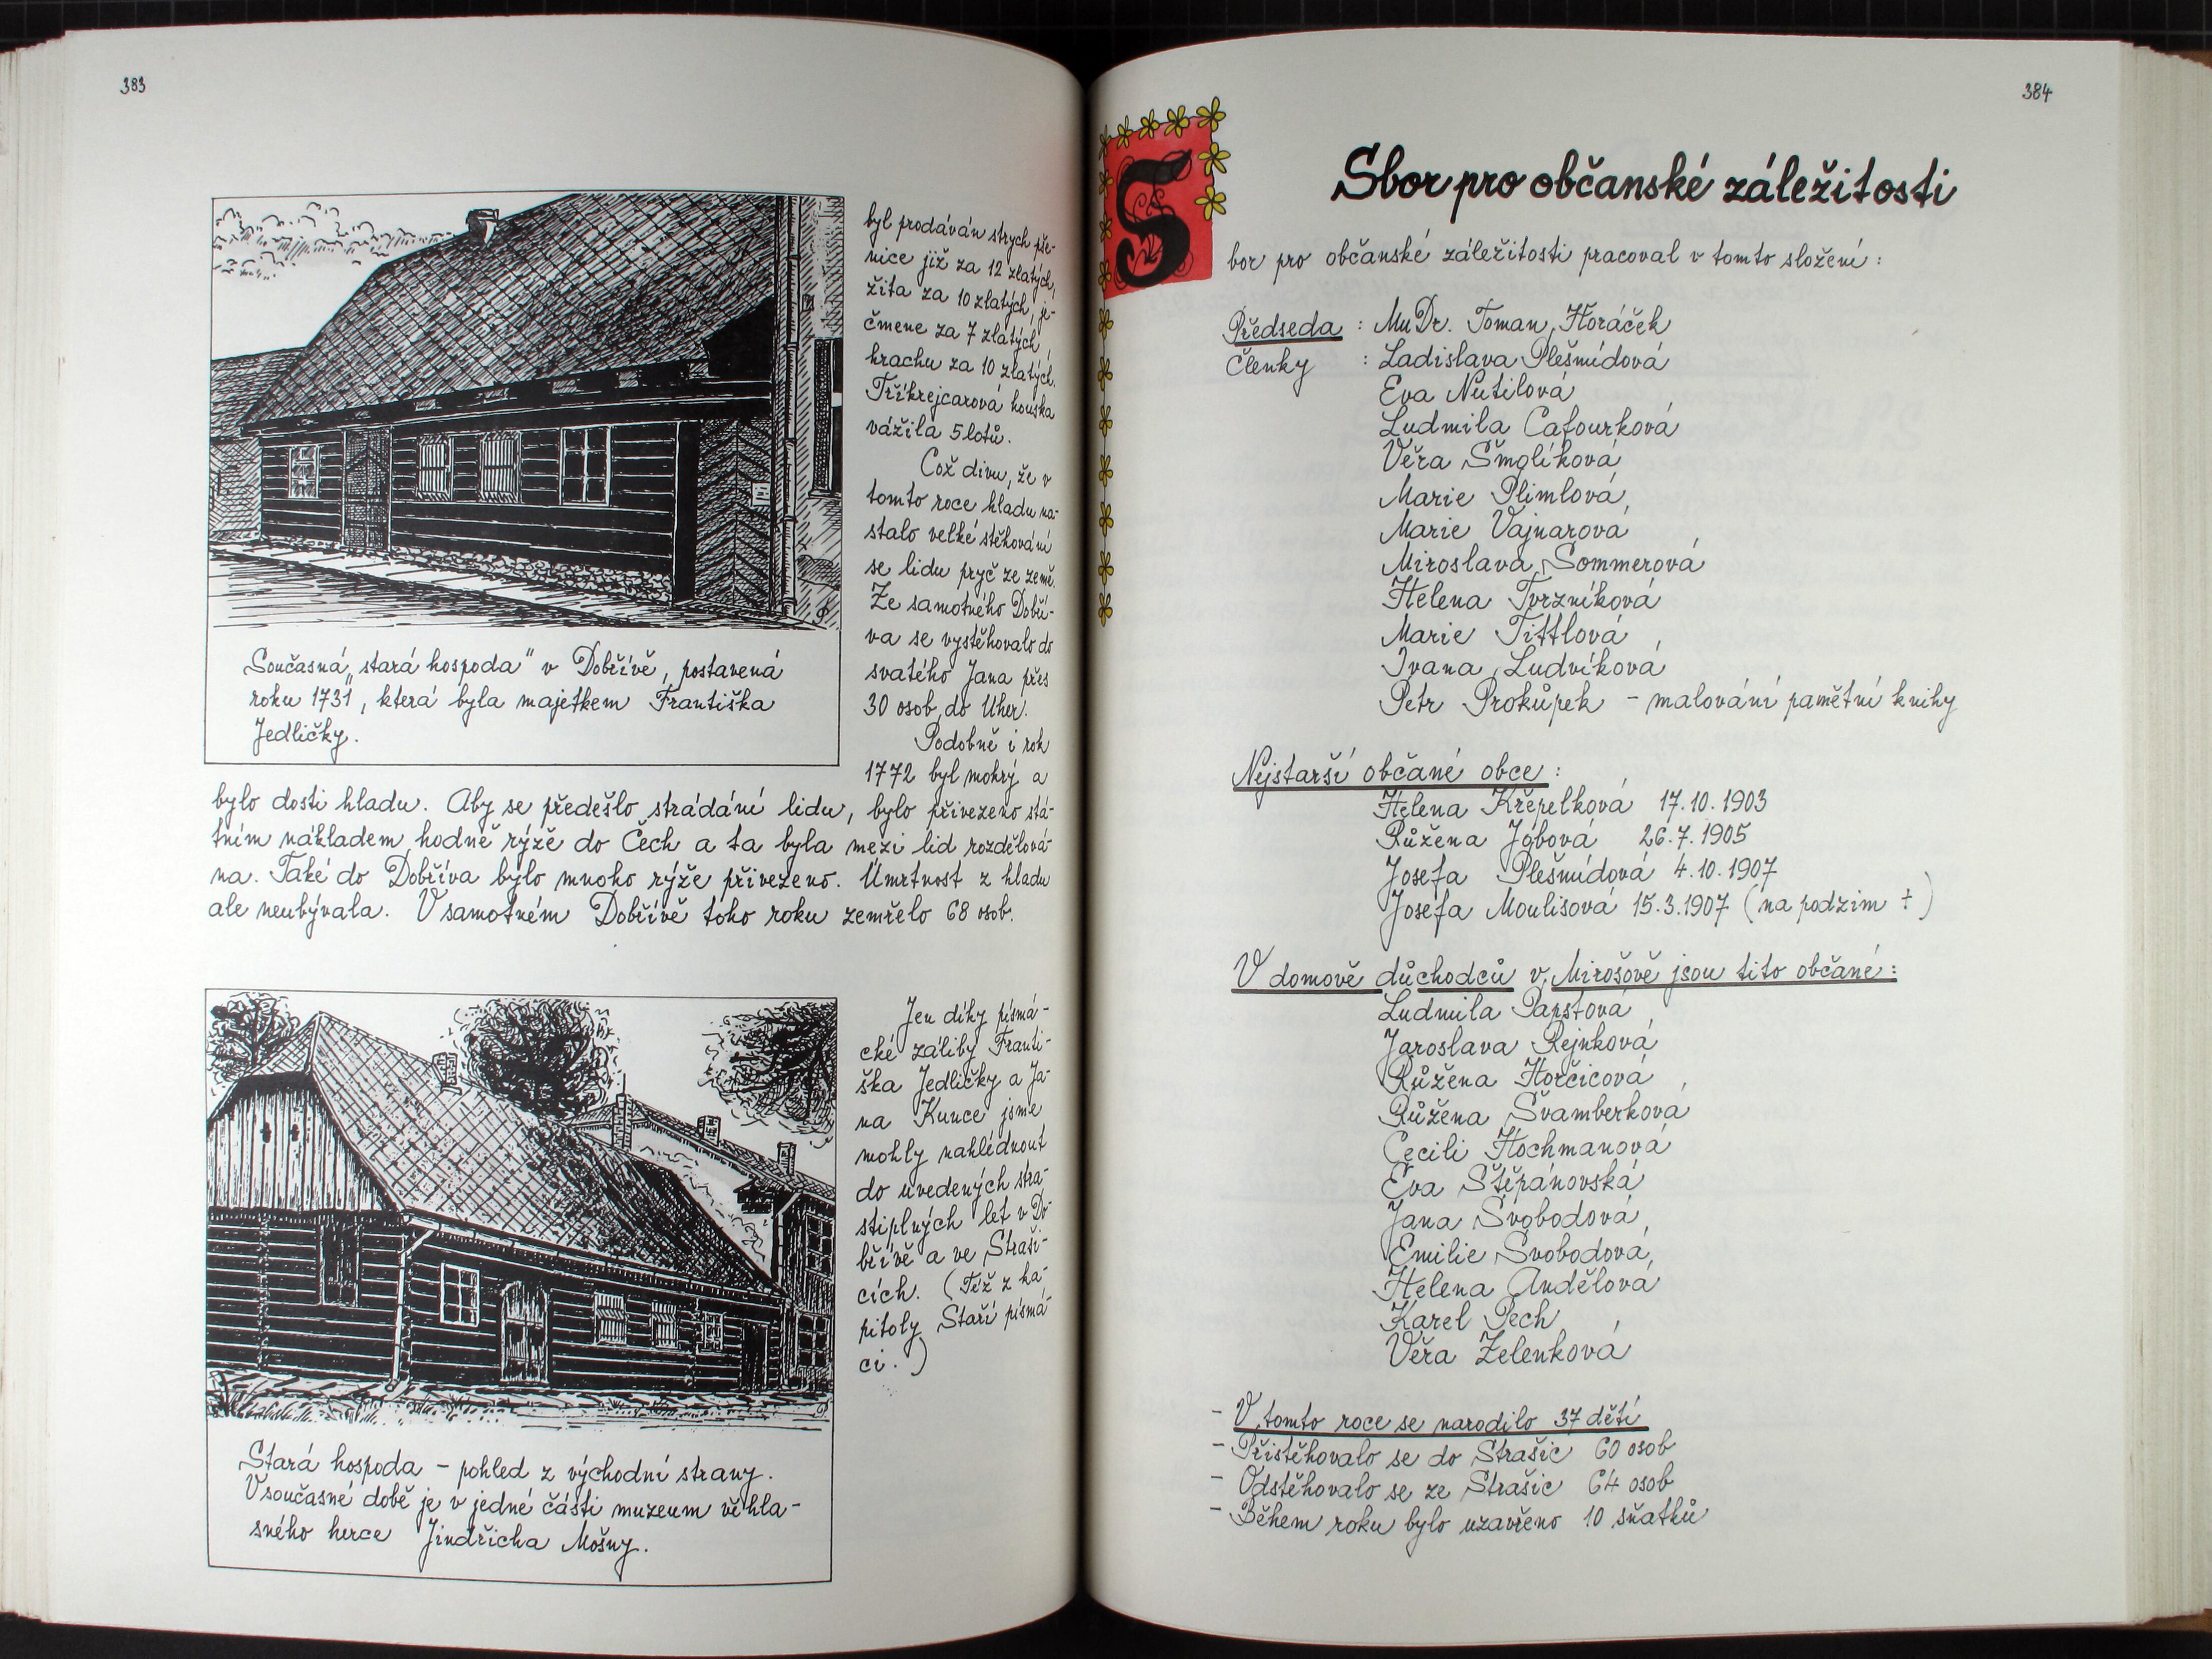 383
byl prodáván strych pše-
nice již za 12 zlatých,
žita za 10 zlatých, je-
čmene za 7 zlatých,
hrachu za 10 zlatých.
Tříkrejcarová houska
vážila 5 lotů.
Což divu, že v
tomto roce hladu na-
stalo velké stěhování
se lidu pryč ze země.
Ze samotného Dobří-
va se vystěhovalo do
svatého Jana přes
30 osob do Uher.
Podobně i rok
1772 byl mokrý a
Současná „stará hospoda" v Dobřívě, postavená
roku 1731, která byla majetkem Františka
Jedličky.
bylo dosti hladu. Aby se předešlo strádání lidu, bylo přivezeno stá-
tním nákladem hodně rýže do Čech a ta byla mezi lid rozdělová-
na. Také do Dobříva bylo mnoho rýže přivezeno. Úmrtnost z hladu
ale neubývala. V samotném Dobřívě toho roku zemřelo 68 osob.
Jen díky písmá-
cké záliby Franti-
ška Jedličky a Ja-
na Kunce jsme
mohly nahlédnout
do uvedených stra-
stiplných let v Do-
břívě a ve Straši-
cích. (Též z ka-
pitoly Staří písmá-
ci.)
Stará hospoda - pohled z východní strany.
V současné době je v jedné části muzeum věhla-
sného herce Jindřicha Mošny.
384
Sbor pro občanské záležitosti
Sbor pro občanské záležitosti pracoval v tomto složení:
Předseda : MuDr. Toman Horáček
Členky : Ladislava Plešmídová
Eva Nutilová
Ludmila Cafourková
Věra Šmolíková
Marie Plimlová
Marie Vajnarová
Miroslava Sommerová
Helena Tvrzníková
Marie Tittlová
Ivana Ludvíková
Petr Prokůpek - malování pamětní knihy
Nejstarší občané obce:
Helena Křepelková 17.10.1903
Růžena Jóbová 26.7.1905
Josefa Plešmídová 4.10.1907
Josefa Moulisová 15.3.1907 (na podzim †)
V domově důchodců v Mirošově jsou tito občané:
Ludmila Parstová
Jaroslava Rejnková
Růžena Horčicová
Růžena Švamberková
Cecili Hochmanová
Eva Štěpánovská
Jana Svobodová
Emilie Svobodová
Helena Andělová
Karel Pech
Věra Zelenková
- V tomto roce se narodilo 37 dětí
- Přistěhovalo se do Strašic 60 osob
- Odstěhovalo se ze Strašic 64 osob
- Během roku bylo uzavřeno 10 sňatků